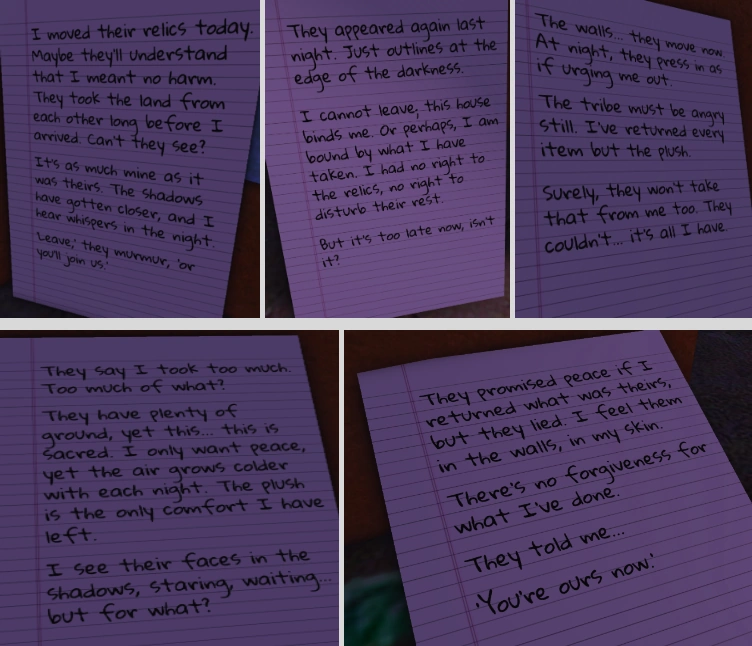 I moved their relics today.
Maybe they'll understand
that I meant no harm.
They took the land from
each other long before I
arrived. Can't they see?
It's as much mine as it
was theirs. The shadows
have gotten closer, and I
hear whispers in the night.
'Leave,' they murmur, 'or
you'll join us.'
They appeared again last
night. Just outlines at the
edge of the darkness.
I cannot leave, this house
binds me. Or perhaps, I am
bound by what I have
taken. I had no right to
the relics, no right to
disturb their rest.
But it's too late now, isn't
it?
The walls... they move now.
At night, they press in as
if urging me out.
The tribe must be angry
still. I've returned every
item but the plush.
Surely, they won't take
that from me too. They
couldn't... it's all I have.
They say I took too much.
Too much of what?
They have plenty of
ground, yet this... this is
sacred. I only want peace,
yet the air grows colder
with each night. The plush
is the only comfort I have
left.
I see their faces in the
shadows, staring, waiting...
but for what?
They promised peace if I
returned what was theirs,
but they lied. I feel them
in the walls, in my skin.
There's no forgiveness for
what I've done.
They told me...
'You're ours now.'